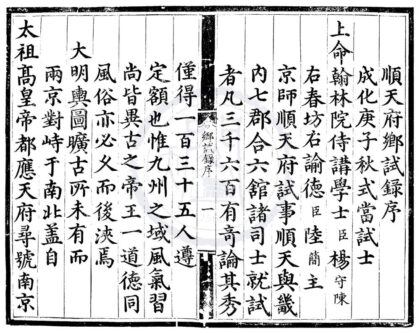 順天府鄉試錄序
成化庚子秋式當試士
上命翰林院侍講學士臣楊守陳
右春坊右諭德臣陸簡主
京師順天府試事順天與畿
內七郡合六館諸司士就試
者凡三千六百有奇論其秀
鄉試錄序 一
僅得一百三十五人遵
定額也惟九州之域風氣習
尚皆異古之帝王一道德同
風俗亦必乂而後浹焉
大明輿圖曠古所未有而
兩京對峙于南北蓋自
太祖高皇帝都應天府尋號南京